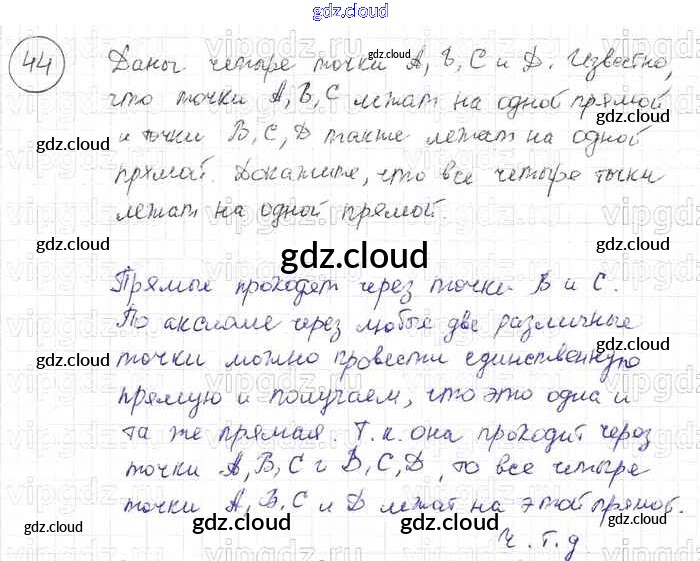 gdz.cloud
44 Даны четыре точки A, B, C и D. Известно,
что точки A, B, C лежат на одной прямой
и точки B, C, D также лежат на одной
прямой. Докажите, что все четыре точки
лежат на одной прямой.
gdz.cloud
Прямые проходят через точки B и C.
По аксиоме через любые две различные
точки можно провести единственную
прямую и получаем, что это одна и
та же прямая. Т.к. она проходит через
точки A, B, C и B, C, D, то все четыре
точки A, B, C и D лежат на этой прямой.
gdz.cloud
ч.т.д.